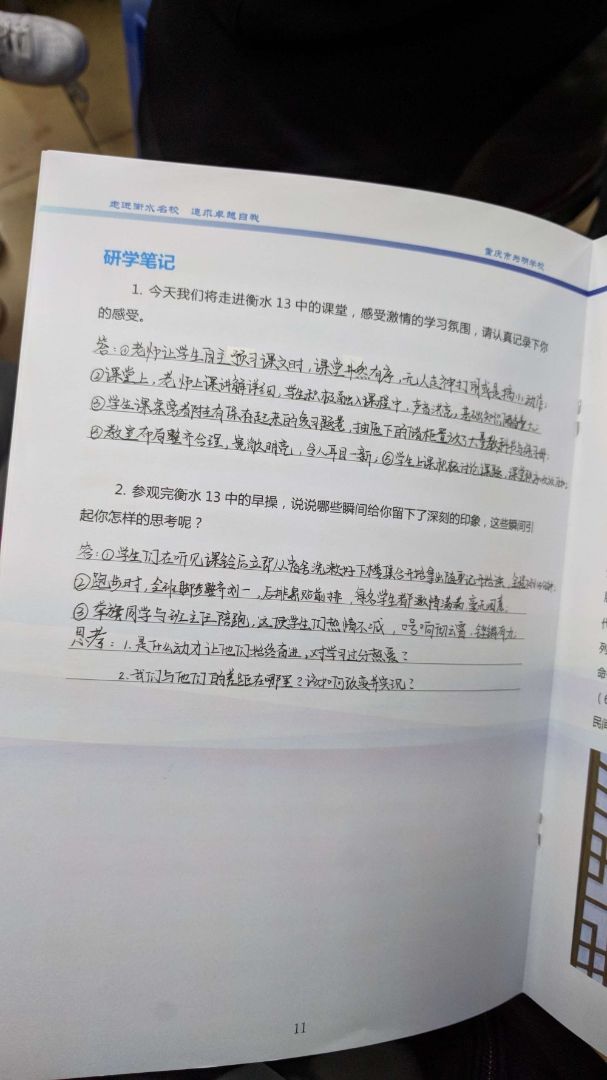 走进衡水名校 追求卓越自我
重庆市为明学校
研学笔记
1. 今天我们将走进衡水 13 中的课堂，感受激情的学习氛围，请认真记录下你
的感受。
答：①老师让学生自主预习课文时，课堂井然有序，无人走神打闹或是搞小动作；
②课堂上，老师上课讲解详细，学生积极融入课程中，声音洪亮，基础知识
③学生课桌旁都挂有保存起来的练习题卷，抽屉下的储柜置放了大量教科书与练习册；
④教室布局整齐合理，宽敞明亮，令人耳目一新，⑤学生上课积极讨论课题，课堂
2. 参观完衡水 13 中的早操，说说哪些瞬间给你留下了深刻的印象，这些瞬间引
起你怎样的思考呢？
答：①学生们在听见课铃后立即从宿舍洗漱好下楼集合开始拿出随笔记开始读，
②跑步时，全班脚步整齐划一，后排紧贴前排，每名学生都激情满满，毫无困意。
③举旗同学与班主任陪跑，这使学生们热情不减，口号响彻云霄，铿锵有力
思考：1. 是什么动力让他们始终奋进，对学习过分热爱？
2. 我们与他们的差距在哪里？该如何改变并实现？
11
代
列
命
（6
民间